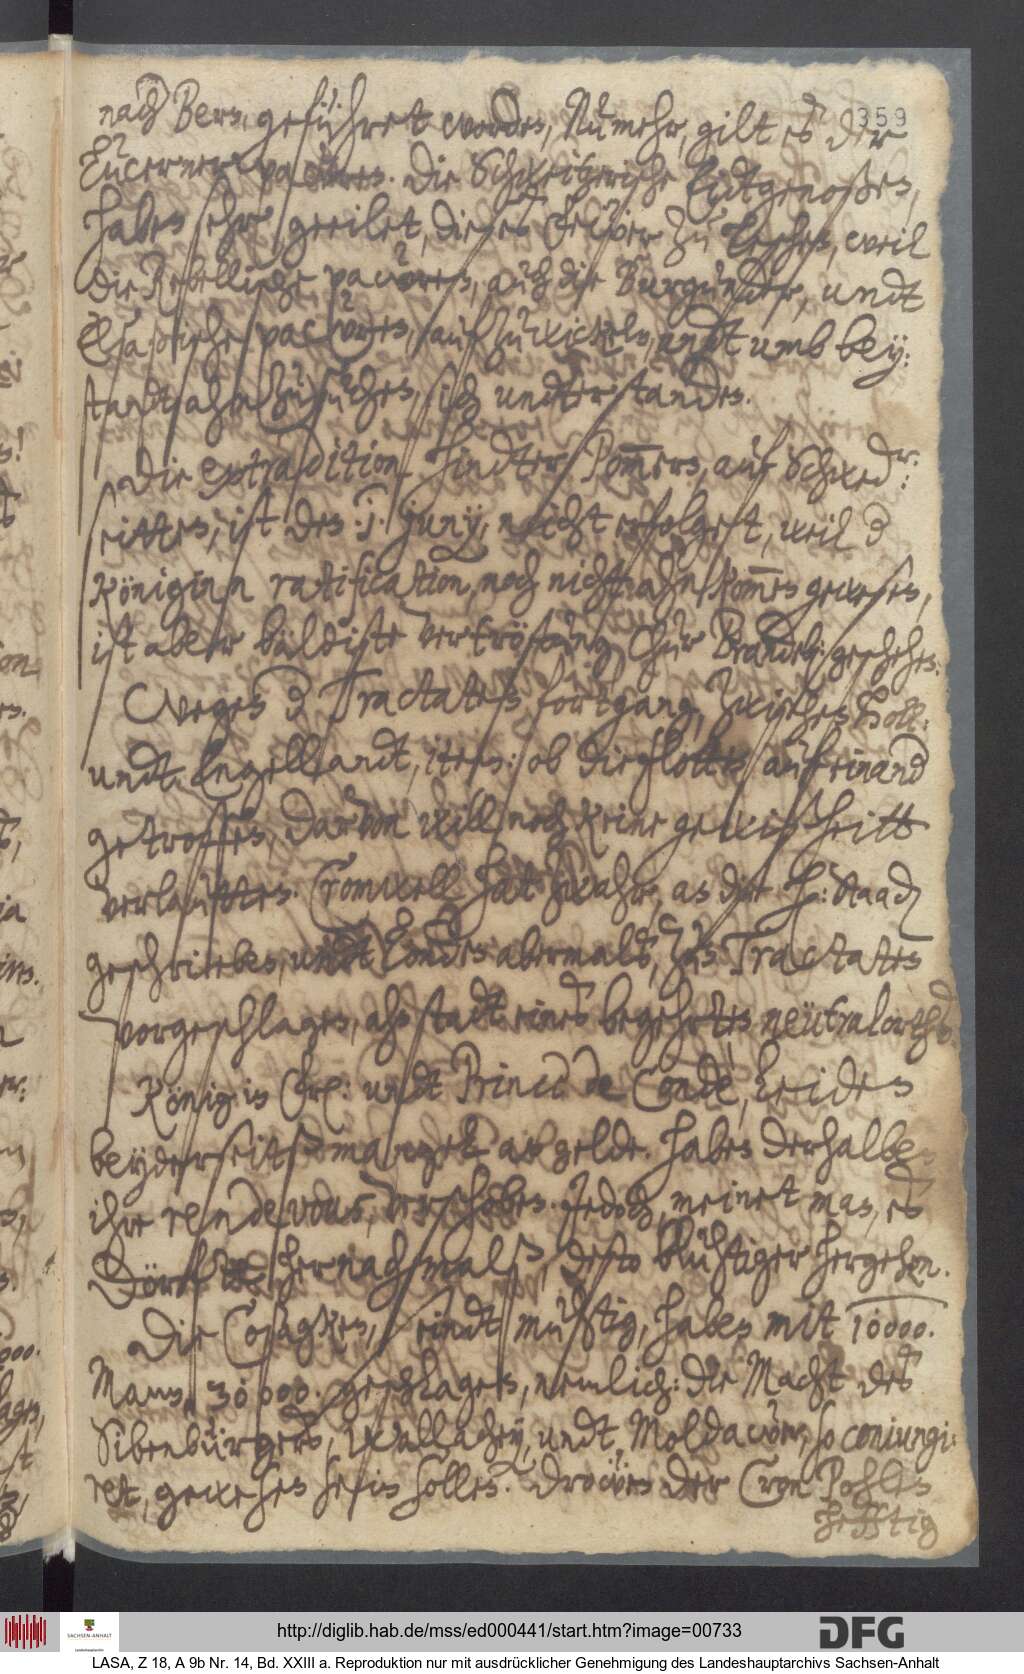 359
nach Bern, geführet worden, Nu mehr, gilt es der
Lucerner pawren. Die Schweitzerische Eidtgenoßen,
haben sehr geeilet, dieses fewer zu leschen, weil
die Rebellische pawren, auch die Burgunder, undt
Elsaßische pawren, aufzuwickeln, undt umb bey:
standt ahnzusuchen, sich understanden.
Die extradition Hinder Pom̄ern, auf Schwed:
seitten, ist den .j. Juny, nicht erfolget, weil d
Königinn ratification, noch nicht ahnkom̄en gewesen,
ist aber baldiste vertröstung Chur Brandeb: geschehen.
Wegen d Tractaten fortgang, zwischen Holl:
undt Engellandt, item: ob die flotten aufeinand
getroffen, darvon will noch keine gewißheitt
verlautten. Cromwell hat zwahr, an die H: Staad
geschrieben, undt Londen abermalß, zun Tractaten
vorgeschlagen, ahnstadt eines begehrten neütralorths.
König in : undt Prince de Condé, leiden
beyderseits mangel an gelde. haben derhalben
ihr rendevous, verschoben. Jedoch, meinet man, es
dörfte hernachmalß, desto bluhtiger hergehen.
Die Cosagken, seindt muhtig, haben mit 10000.
Mann, 30000. geschlagen, nemlich: die Macht des
Sibenbürgers, Wallachey, undt Moldawer, so coniungi:
ret, gewesen sein sollen. Drowen der Cron Pohlen
heftig
http://diglib.hab.de/mss/ed000441/start.htm?image=00733
SACHSEN-ANHALT
DFG
LASA, Z 18, A 9b Nr. 14, Bd. XXIII a. Reproduktion nur mit ausdrücklicher Genehmigung des Landeshauptarchivs Sachsen-Anhalt